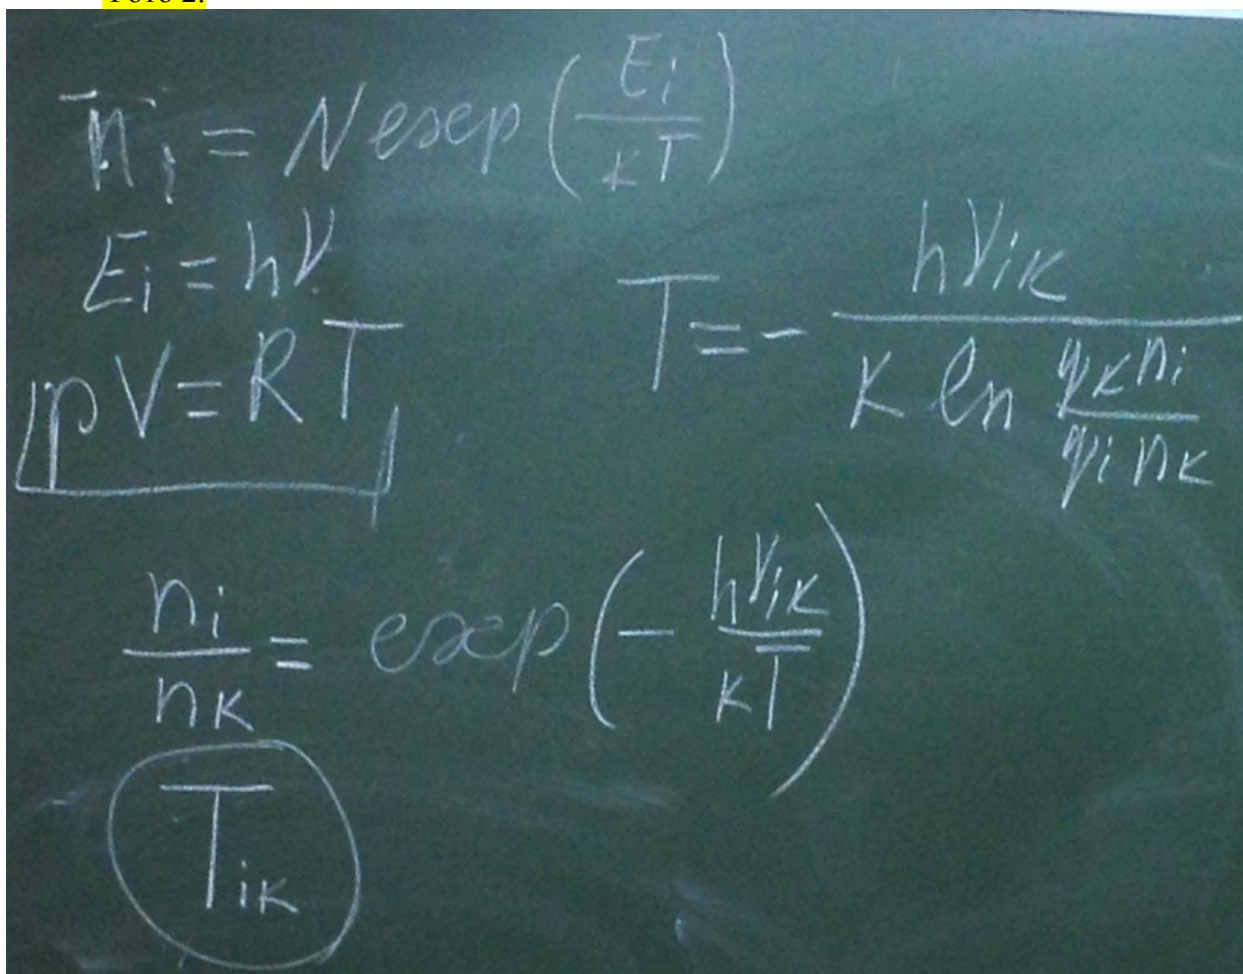 Фото 2.
n̅ᵢ = N exp (Eᵢ / кT)
Eᵢ = hν
pV = RT
T = - hνᵢₖ / (к ln (qₖnᵢ / qᵢnₖ))
nᵢ / nₖ = exp (- hνᵢₖ / кT)
Tᵢₖ